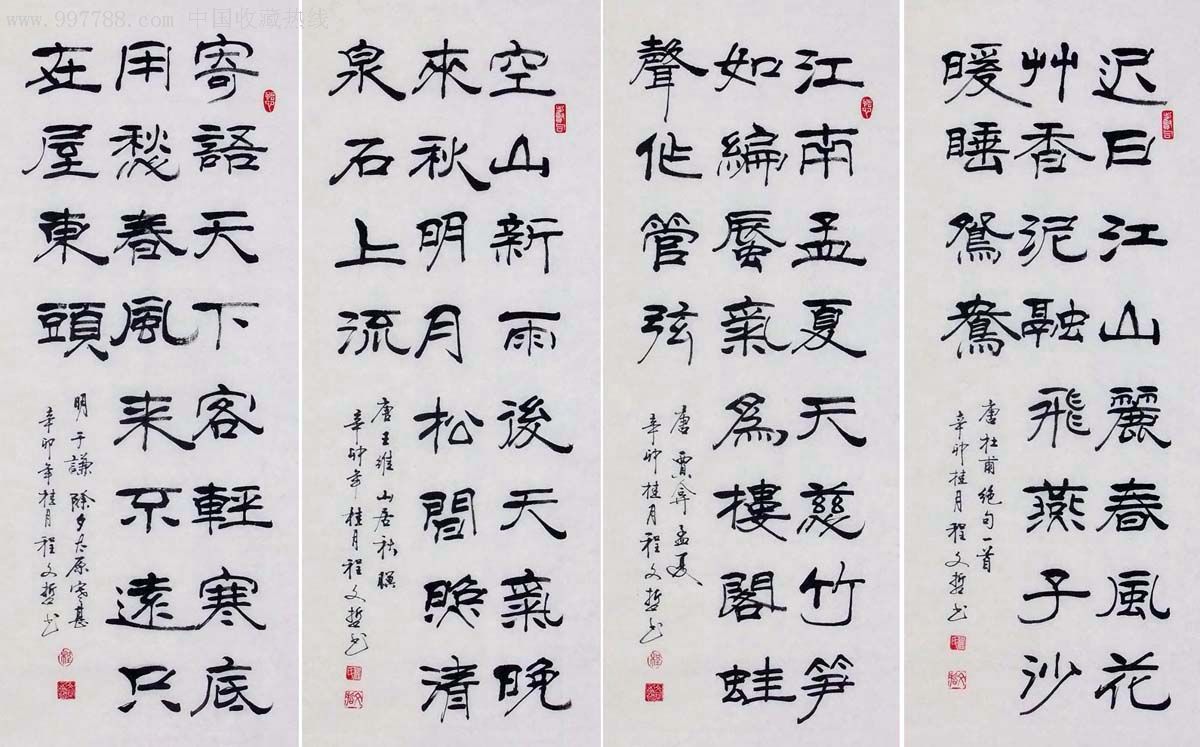 www.997788.com 中国收藏热线
迟日江山麗春風花
艸香泥融飛燕子沙
暖睡鴛鴦
唐杜甫絕句一首
辛卯桂月程文哲书
江南孟夏天慈竹笋
如編蜃氣為樓閣蛙
聲作管弦
唐賈弇孟夏
辛卯桂月程文哲书
空山新雨後天氣晚
來秋明月松間照清
泉石上流
唐王維山居秋暝
辛卯年桂月程文哲书
寄語天下客輕寒底
用愁春風来不遠只
在屋東頭
明于謙除夕太原寒甚
辛卯年桂月程文哲书